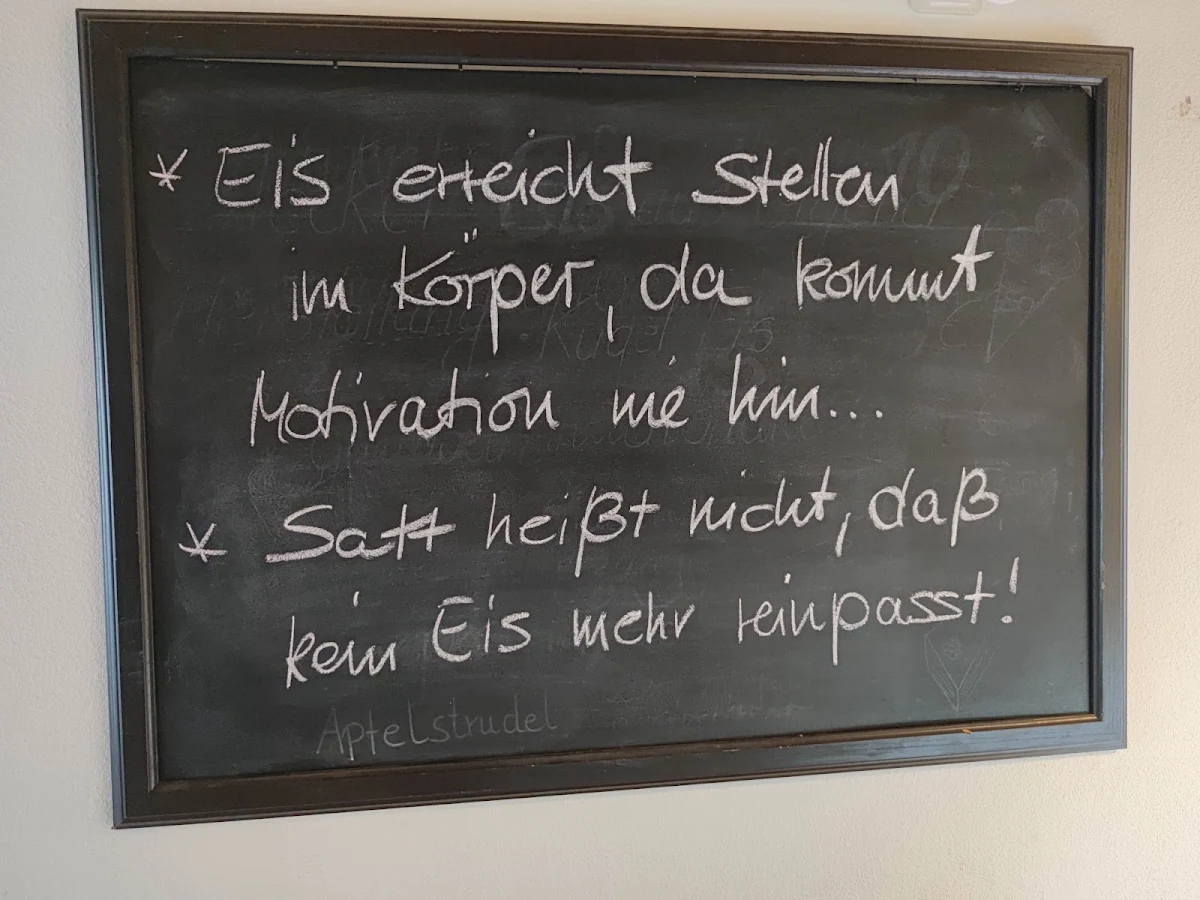 * Eis erreicht Stellen
im Körper, da kommt
Motivation nie hin...
* Satt heißt nicht, daß
kein Eis mehr reinpasst!
Apfelstrudel